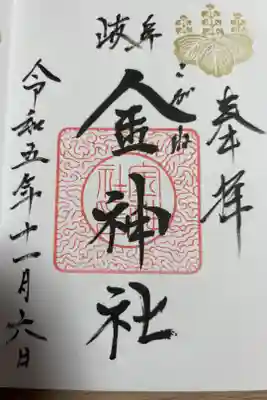 奉拝
岐阜
こがね
金神社
令和五年十一月六日